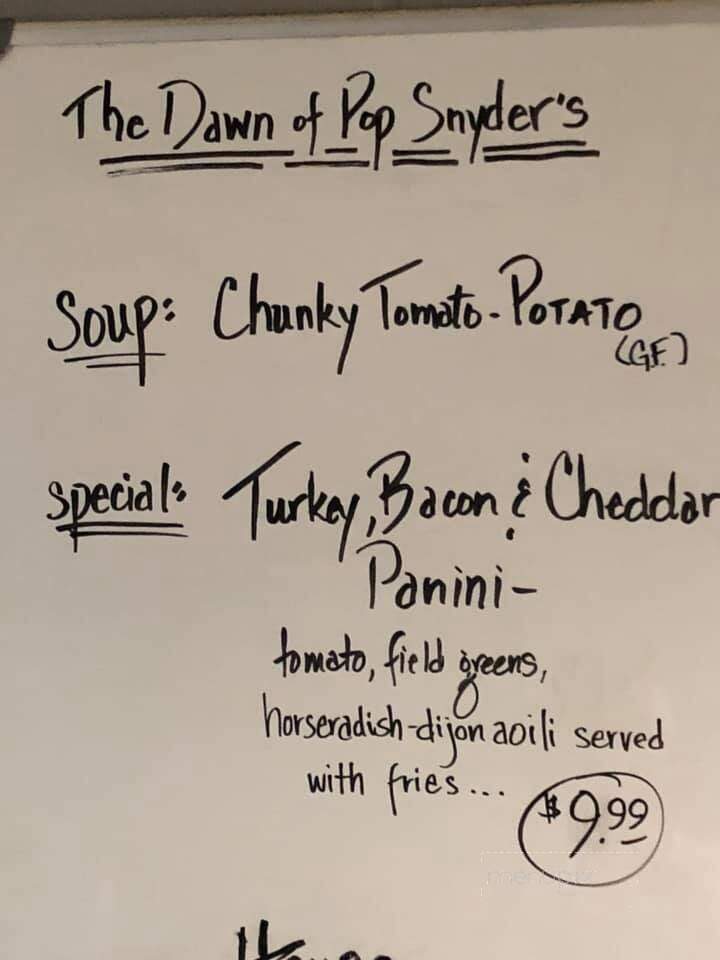 The Dawn of Pop Snyder's
Soup: Chunky Tomato-POTATO
(GF)
Special: Turkey, Bacon & Cheddar
Panini-
tomato, field greens,
horseradish-dijon aoili served
with fries...
$9.99